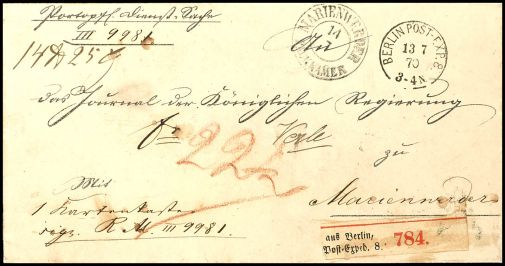 Portopfl. Dienst-Sache
III 9981
14 ℔ 25
An
MARIENWERDER
14
BERLIN POST-EXP. 8.
13 7
70
3-4 N
das Journal der Königlichen Regierung
zu
Marienwerder
Mit
1 Kartenkasten
sign. R. M. III 9981.
aus Berlin,
Post-Exped. 8.
784.